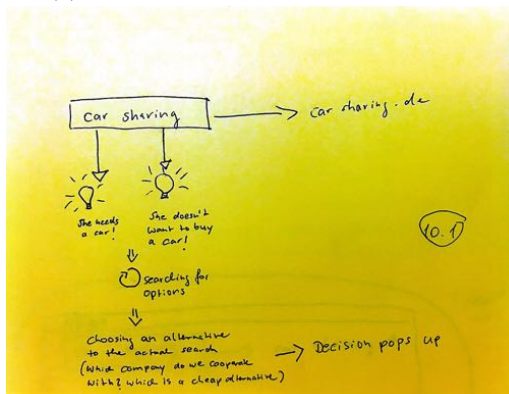 car sharing
car sharing.de
She needs
a car!
She doesn't
want to buy
a car!
10.1
searching for
options
choosing an alternative
to the actual search
(which company do we cooperate
with? which is a cheap alternative)
Decision pops up